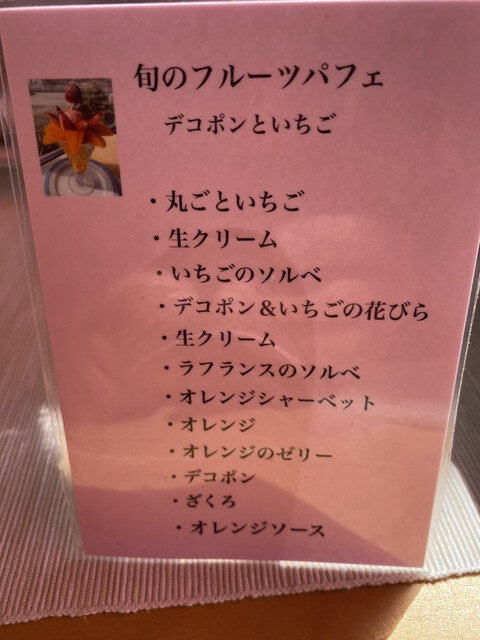 旬のフルーツパフェ
デコポンといちご
・丸ごといちご
・生クリーム
・いちごのソルベ
・デコポン＆いちごの花びら
・生クリーム
・ラフランスのソルベ
・オレンジシャーベット
・オレンジ
・オレンジのゼリー
・デコポン
・ざくろ
・オレンジソース